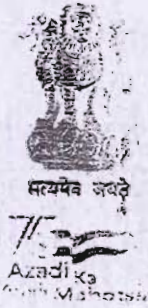 सत्यमेव जयते
75
Azadi Ka
Amrit Mahotsav